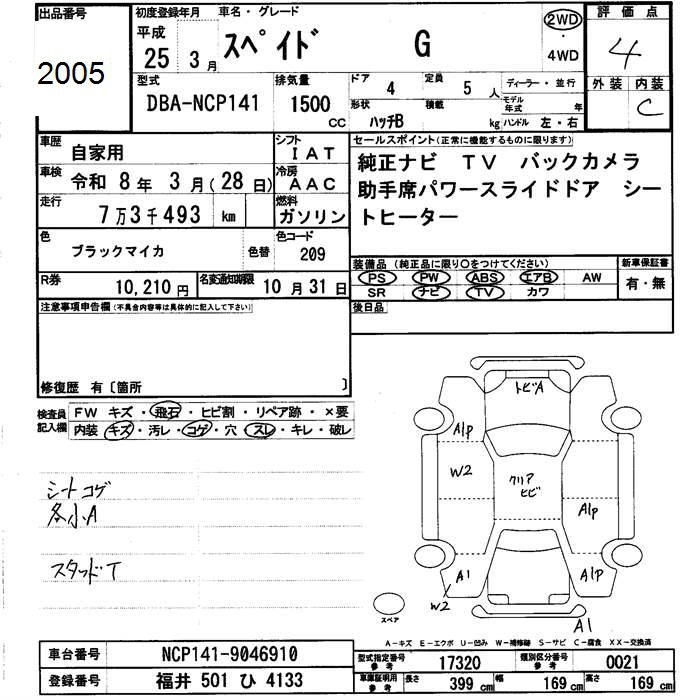 出品番号
2005
初度登録年月 車名・グレード
平成
25年 3月 スペイド G
2WD
4WD
評価点
4
型式 排気量 ドア 4 定員 5人 ディーラー・並行
外装 内装
DBA-NCP141 1500 CC
形状 ハッチB 積載 kg
モデル年式 年
ハンドル 左・右
C
車歴 自家用
シフト IAT
セールスポイント(正常に機能するものに限ります)
車検 令和 8年 3月(28日)
冷房 AAC
純正ナビ TV バックカメラ
助手席パワースライドドア シー
トヒーター
走行 7万3千493 km
燃料 ガソリン
色 ブラックマイカ 色替
色コード 209
装備品(純正品に限り○をつけてください)
新車保証書
R券 10,210円
名変通知期限 10月31日
PS PW ABS エアB AW
SR ナビ TV カワ
有・無
注意事項申告欄(不具合内容等は具体的に記入して下さい)
後日品
修復歴 有〔箇所 〕
検査員記入欄
FW キズ・飛石・ヒビ割・リペア跡・×要
内装 キズ・汚レ・コゲ・穴・スレ・キレ・破レ
シートコゲ
各小A
スタッドT
トビA
A1P
W2
クリア
ヒビ
A1P
A1
A1P
W2
スペア
A1
A-キズ E-エクボ U-凹み W-補修跡 S-サビ C-腐食 XX-交換済
車台番号 NCP141-9046910
登録番号 福井 501 ひ 4133
型式指定番号 参考 17320 類別区分番号 参考 0021
車庫証明用 参考 長さ 399 cm 幅 169 cm 高さ 169 cm